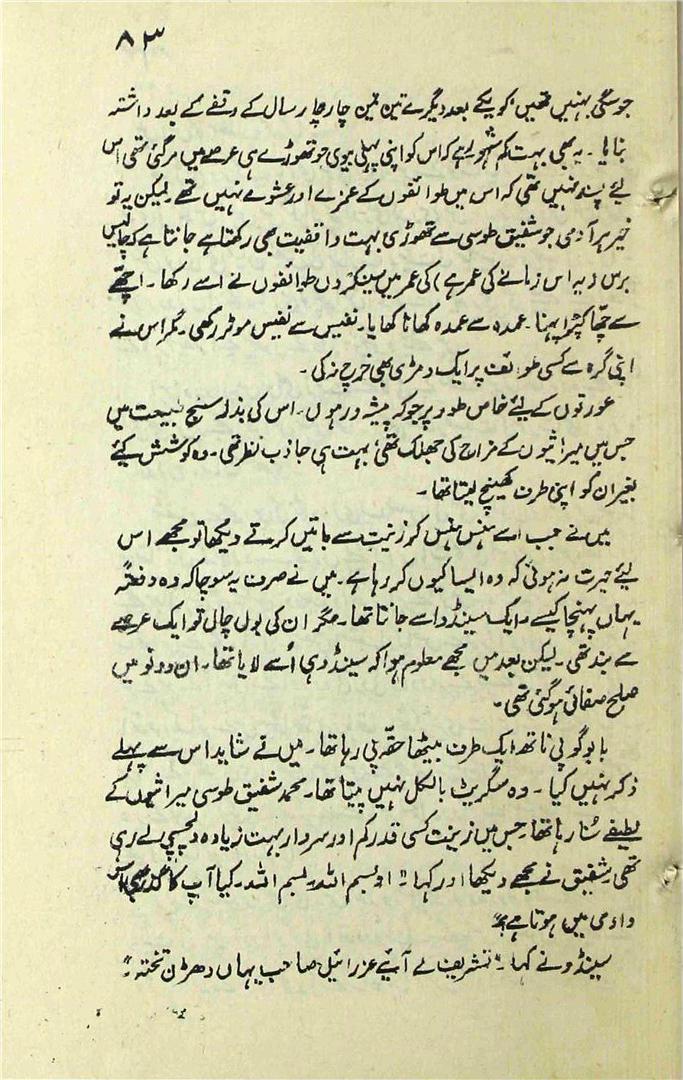 ۸۳
جو سگی بہنیں تھیں، کو یکے بعد دیگرے تین تین چار چار سال کے وقفے کے بعد داشتہ
بنایا۔ یہ بھی بہت کم مشہور ہے کہ اس کو اپنی پہلی بیوی جو تھوڑے ہی عرصے میں مر گئی تھی اس
لئے پسند نہیں تھی کہ اس میں طوائفوں کے غمزے اور عشوے نہیں تھے۔ لیکن یہ تو
خیر ہر آدمی جو شفیق طوسی سے تھوڑی بہت واقفیت بھی رکھتا ہے جانتا ہے کہ چالیس
برس (یہ اس زمانے کی عمر ہے) کی عمر میں سینکڑوں طوائفوں نے اسے رکھا۔ اچھے
سے اچھا کپڑا پہنا۔ عمدہ سے عمدہ کھانا کھایا۔ نفیس سے نفیس موٹر رکھی۔ مگر اس نے
اپنی گرہ سے کسی طوائف پر ایک دمڑی بھی خرچ نہ کی۔
عورتوں کے لئے خاص طور پر جو کہ پیشہ ور ہوں۔ اس کی بذلہ سنج طبیعت میں
جس میں میراثیوں کے مزاج کی جھلک تھی، بہت ہی جاذب نظر تھی۔ وہ کوشش کئے
بغیر ان کو اپنی طرف کھینچ لیتا تھا۔
میں نے جب اسے ہنس ہنس کر زینت سے باتیں کرتے دیکھا تو مجھے اس
لئے حیرت نہ ہوئی کہ وہ ایسا کیوں کر رہا ہے۔ میں نے صرف یہ سوچا کہ وہ دفعتہً
یہاں پہنچا کیسے۔ ایک سینڈو اسے جانتا تھا۔ مگر ان کی بول چال تو ایک عرصے
سے بند تھی۔ لیکن بعد میں مجھے معلوم ہوا کہ سینڈو ہی اُسے لایا تھا۔ ان دونوں میں
صلح صفائی ہو گئی تھی۔
بابو گوپی ناتھ ایک طرف بیٹھا حقّہ پی رہا تھا۔ میں نے شاید اس سے پہلے
ذکر نہیں کیا۔ وہ سگریٹ بالکل نہیں پیتا تھا۔ محمد شفیق طوسی میراثیوں کے
لطیفے سُنا رہا تھا۔ جس میں زینت کسی قدر کم اور سردار بہت زیادہ دلچسپی لے رہی
تھی۔ شفیق نے مجھے دیکھا اور کہا۔ "او بسم اللہ۔ بسم اللہ۔ کیا آپ کا گذر بھی اس
وادی میں ہوتا ہے؟"
سینڈو نے کہا۔ "تشریف لے آئیے عزرائیل صاحب یہاں دھڑن تختہ۔"